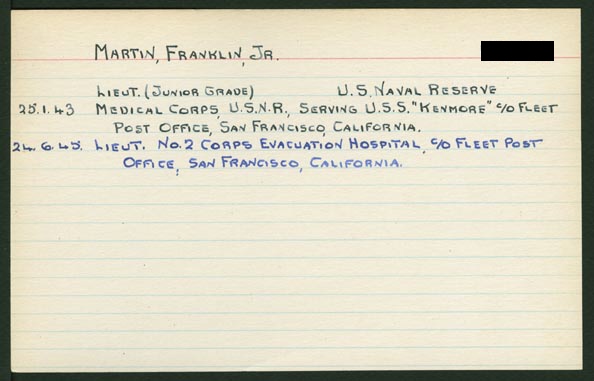 MARTIN, FRANKLIN, JR.
LIEUT. (JUNIOR GRADE) U.S. NAVAL RESERVE
25.1.43 MEDICAL CORPS, U.S.N.R., SERVING U.S.S. "KENMORE" c/o FLEET
POST OFFICE, SAN FRANCISCO, CALIFORNIA.
24.6.45. LIEUT. NO.2 CORPS EVACUATION HOSPITAL, c/o FLEET POST
OFFICE, SAN FRANCISCO, CALIFORNIA.